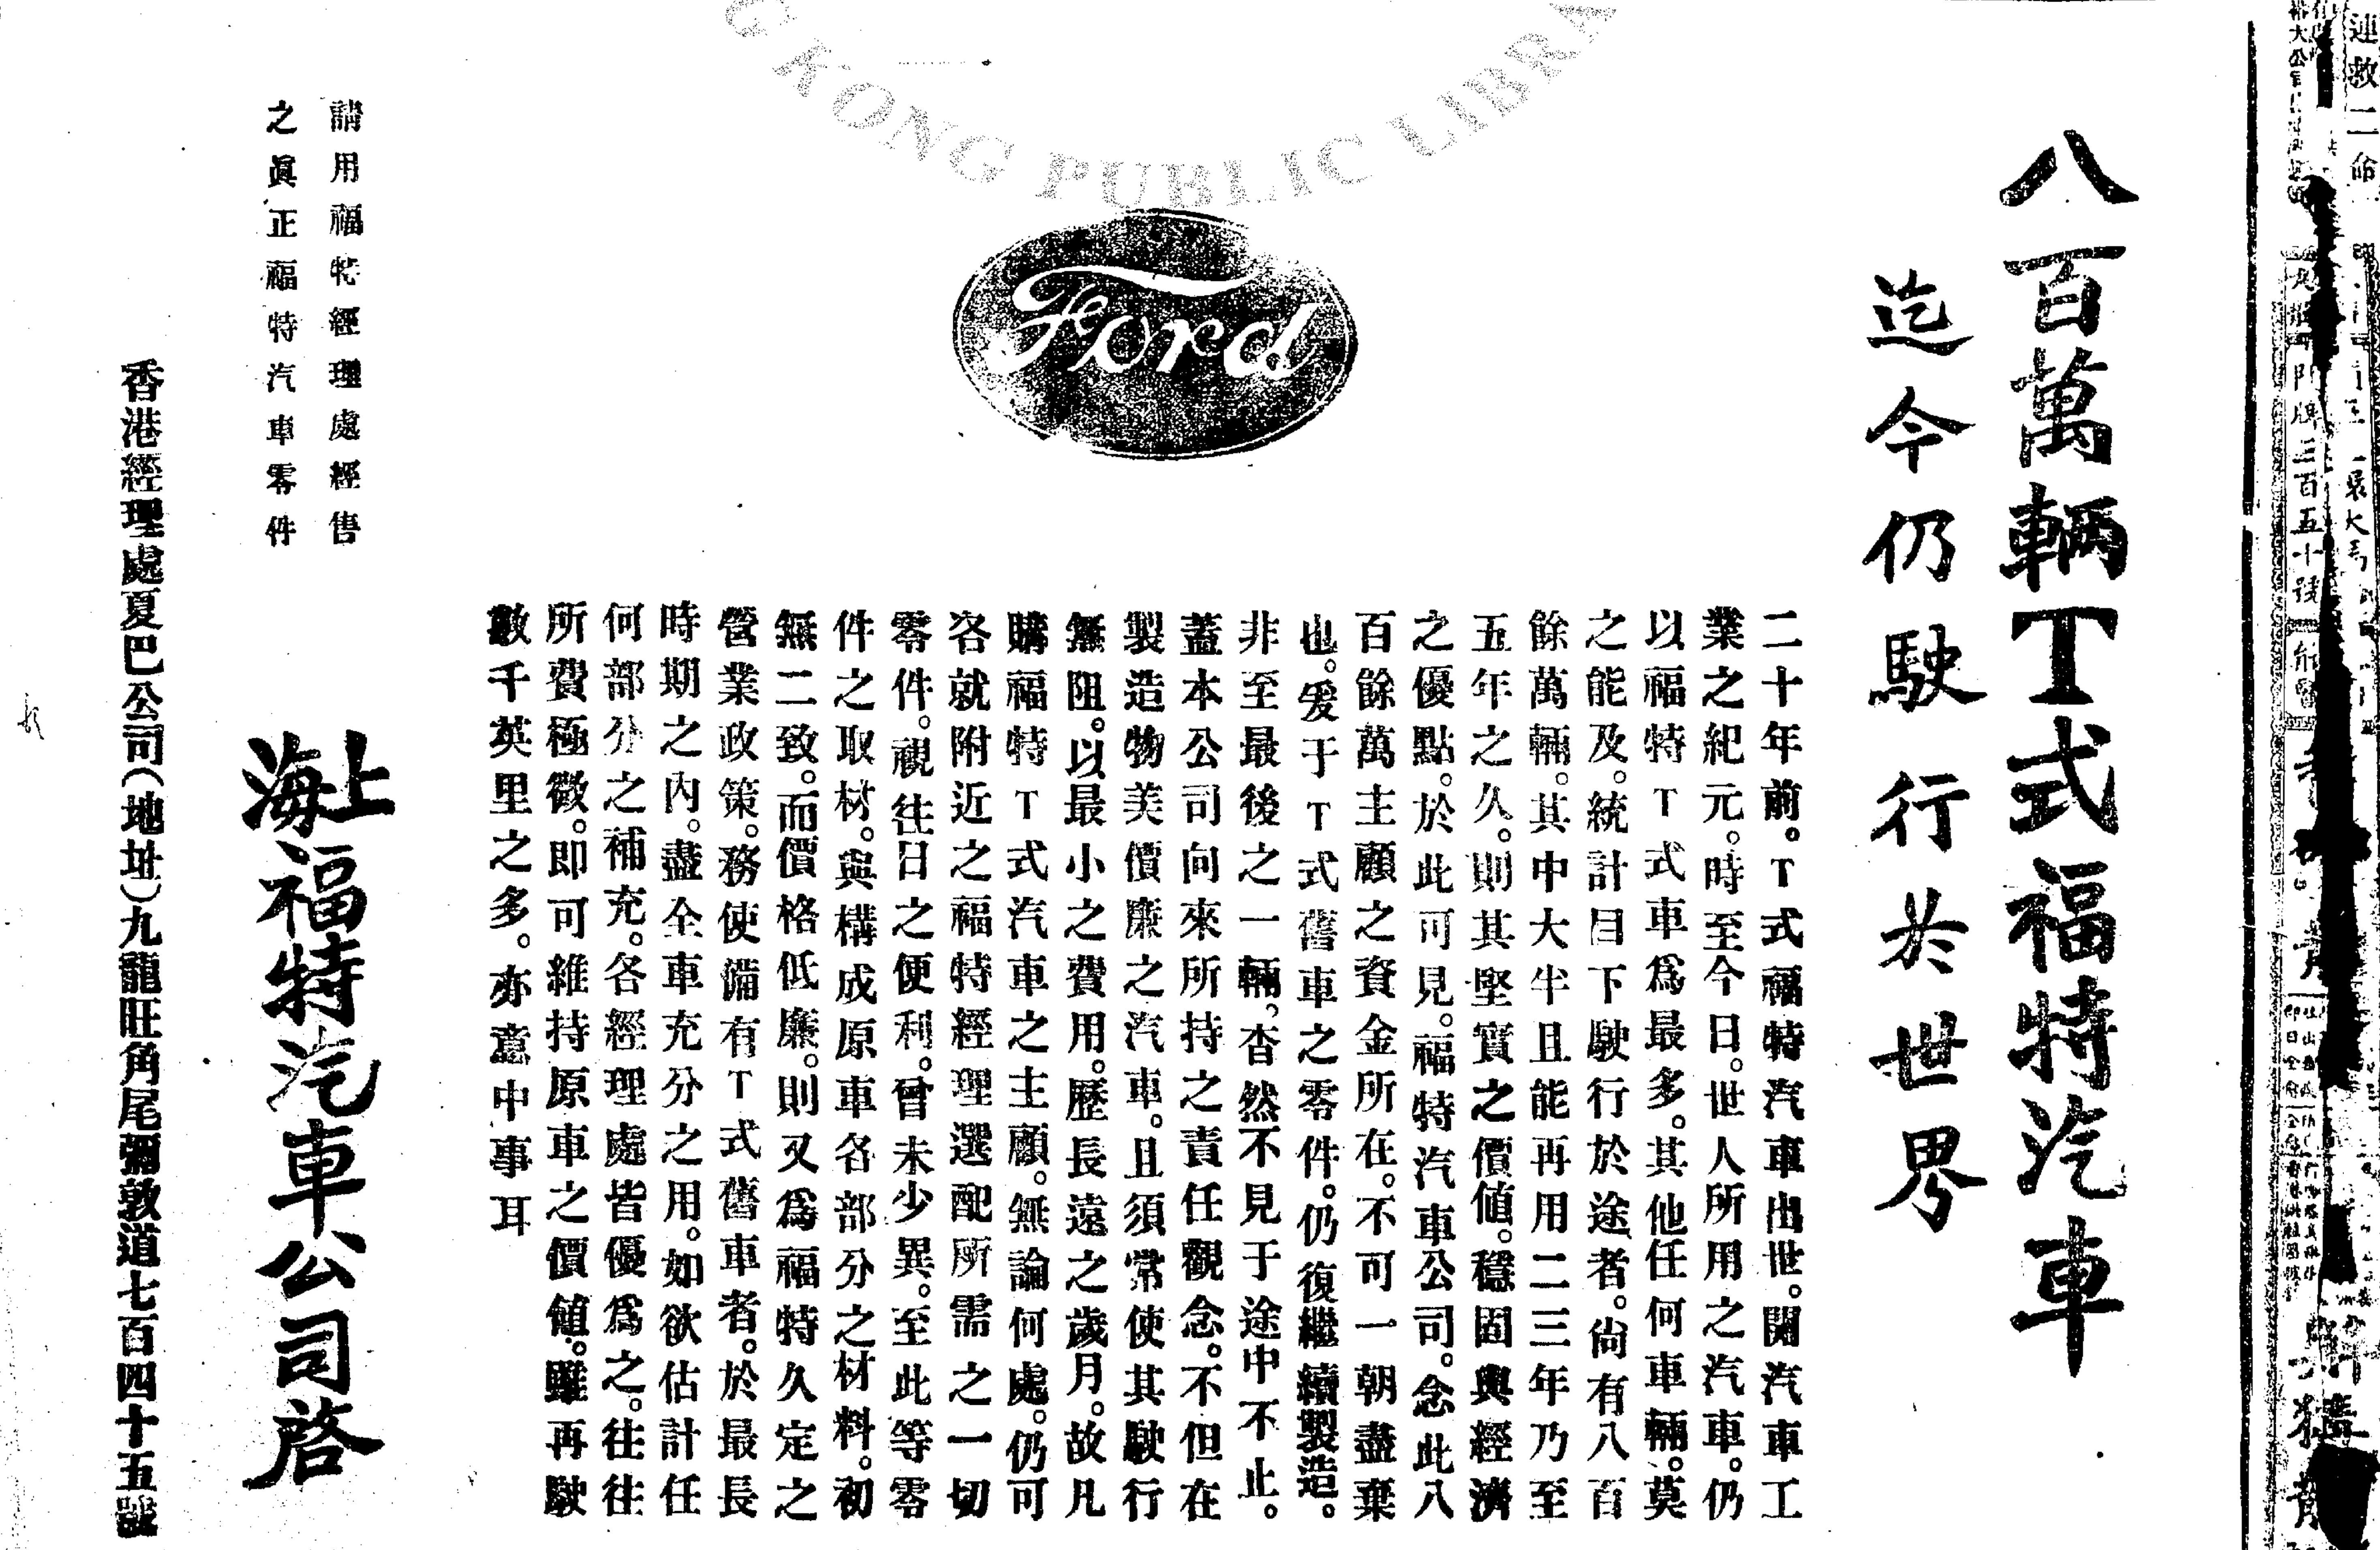 八百萬輛T式福特汽車
迄今仍駛行於世界
HONG KONG PUBLIC LIBRA
Ford
二十年前。T式福特汽車出世。開汽車工
業之紀元。時至今日。世人所用之汽車。仍
以福特T式車爲最多。其他任何車輛。莫
之能及。統計目下駛行於途者。尙有八百
餘萬輛。其中大半且能再用二三年乃至
五年之久。則其堅實之價値。穩固與經濟
之優點。於此可見。福特汽車公司。念此八
百餘萬主顧之資金所在。不可一朝盡棄
也。爰于T式舊車之零件。仍復繼續製造。
非至最後之一輛。杳然不見于途中不止。
蓋本公司向來所持之責任觀念。不但在
製造物美價廉之汽車。且須常使其駛行
無阻。以最小之費用。歷長遠之歲月。故凡
購福特T式汽車之主顧。無論何處。仍可
各就附近之福特經理選配所需之一切
零件。視往日之便利。曾未少異。至此等零
件之取材。與構成原車各部分之材料。初
無二致。而價格低廉。則又爲福特久定之
營業政策。務使備有T式舊車者。於最長
時期之內。盡全車充分之用。如欲估計任
何部分之補充。各經理處皆優爲之。往往
所費極微。即可維持原車之價値。雖再駛
數千英里之多。亦意中事耳
請用福特經理處經售
之眞正福特汽車零件
上海福特汽車公司啓
香港經理處夏巴公司(地址)九龍旺角尾彌敦道七百四十五號